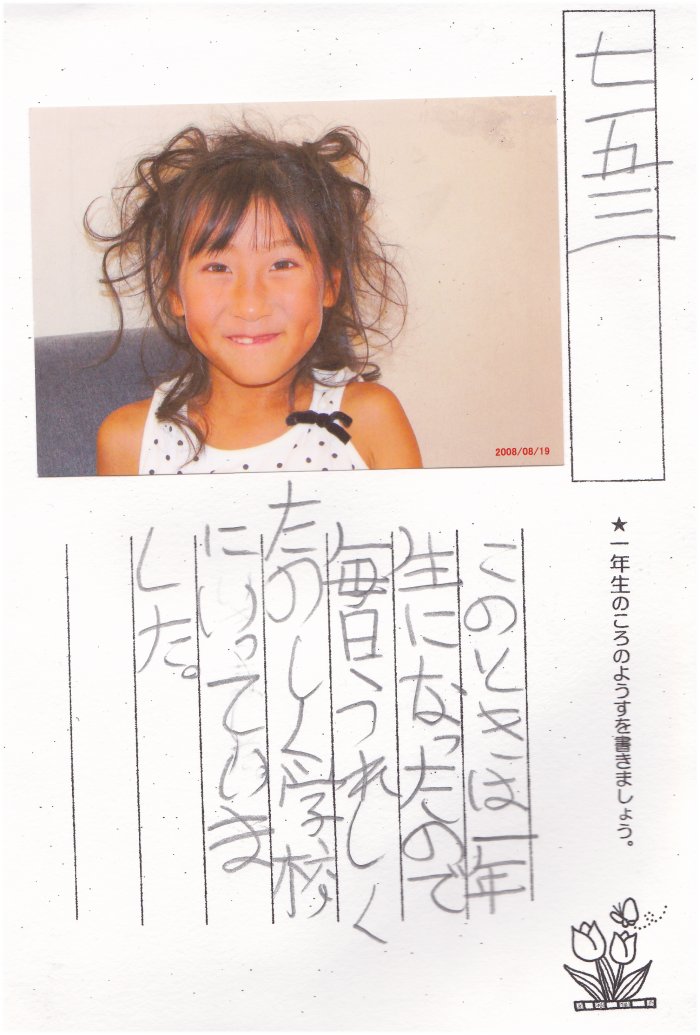 七五三
2008/08/19
★一年生のころのようすを書きましょう。
このときは一年
生になったので
毎日うれしく
たのしく学校
にいっていま
した。